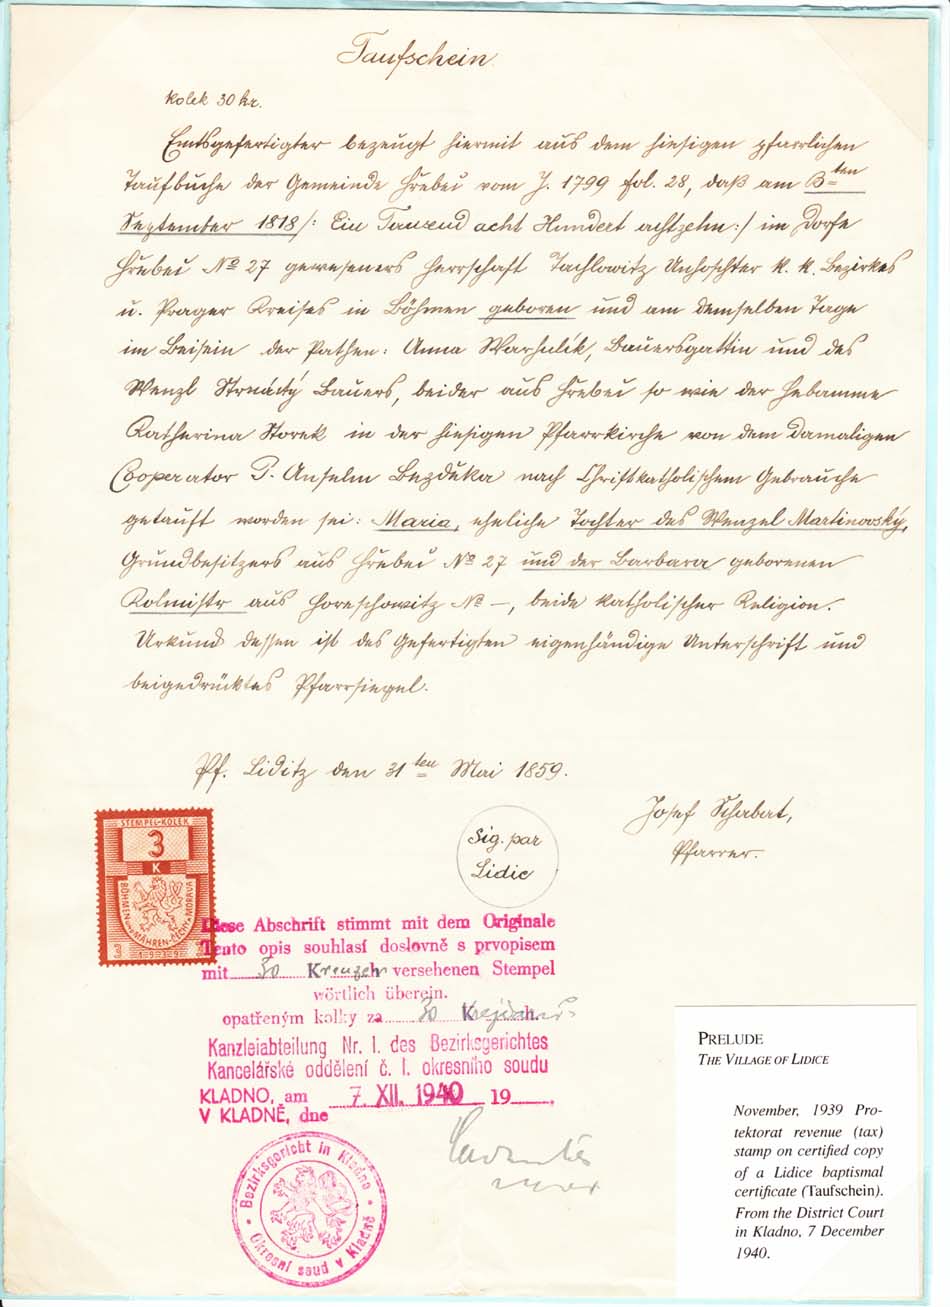 Taufschein
Kolek 30 kr.
Amtsgefertigter bezeugt hiermit aus dem hiesigen pfarrlichen
Taufbuche der Gemeinde Hřebeč vom J. 1799 fol. 28, daß am ten
September 1818 /: Ein Tausend acht Hundert achtzehn :/ im Dorfe
Hřebeč No 27 gewesener Herrschaft Tachlowitz Unhoschter K. K. Bezirkes
u. Prager Kreises in Böhmen geboren und am demselben Tage
im Beisein der Pathen: Anna Warhulik, Bauersgattin und des
Wenzl Strnácký Bauers, beider aus Hřebeč so wie der Hebamme
Katherina Storek in der hiesigen Pfarrkirche von dem damaligen
Cooperator P. Anselm Bezděka nach Christkatholischem Gebrauche
getauft worden sei: Maria, eheliche Tochter des Wenzel Martinovský,
Grundbesitzers aus Hřebeč No 27 und der Barbara geborenen
Kolmistr aus Horeschowitz No —, beide katholischer Religion.
Urkund dessen ist des Gefertigten eigenhändige Unterschrift und
beigedrücktes Pfarrsiegel.
Pf. Liditz den 31ten Mai 1859.
Josef Schabat,
Pfarrer.
Sig. par
Lidic
STEMPEL-KOLEK
3
K
BÖHMEN UND MÄHREN • ČECHY A MORAVA
3 1939
Diese Abschrift stimmt mit dem Originale
Tento opis souhlasí doslovně s prvopisem
mit 30 Kreuzer versehenen Stempel
wörtlich überein.
opatřeným kolky za 30 K h.
Kanzleiabteilung Nr. I. des Bezirksgerichtes
Kancelářské oddělení č. I. okresního soudu
KLADNO, am 7. XII. 1940 19
V KLADNĚ, dne
Bezirksgericht in Kladno
Okresní soud v Kladně
PRELUDE
THE VILLAGE OF LIDICE
November, 1939 Pro-
tektorat revenue (tax)
stamp on certified copy
of a Lidice baptismal
certificate (Taufschein).
From the District Court
in Kladno, 7 December
1940.